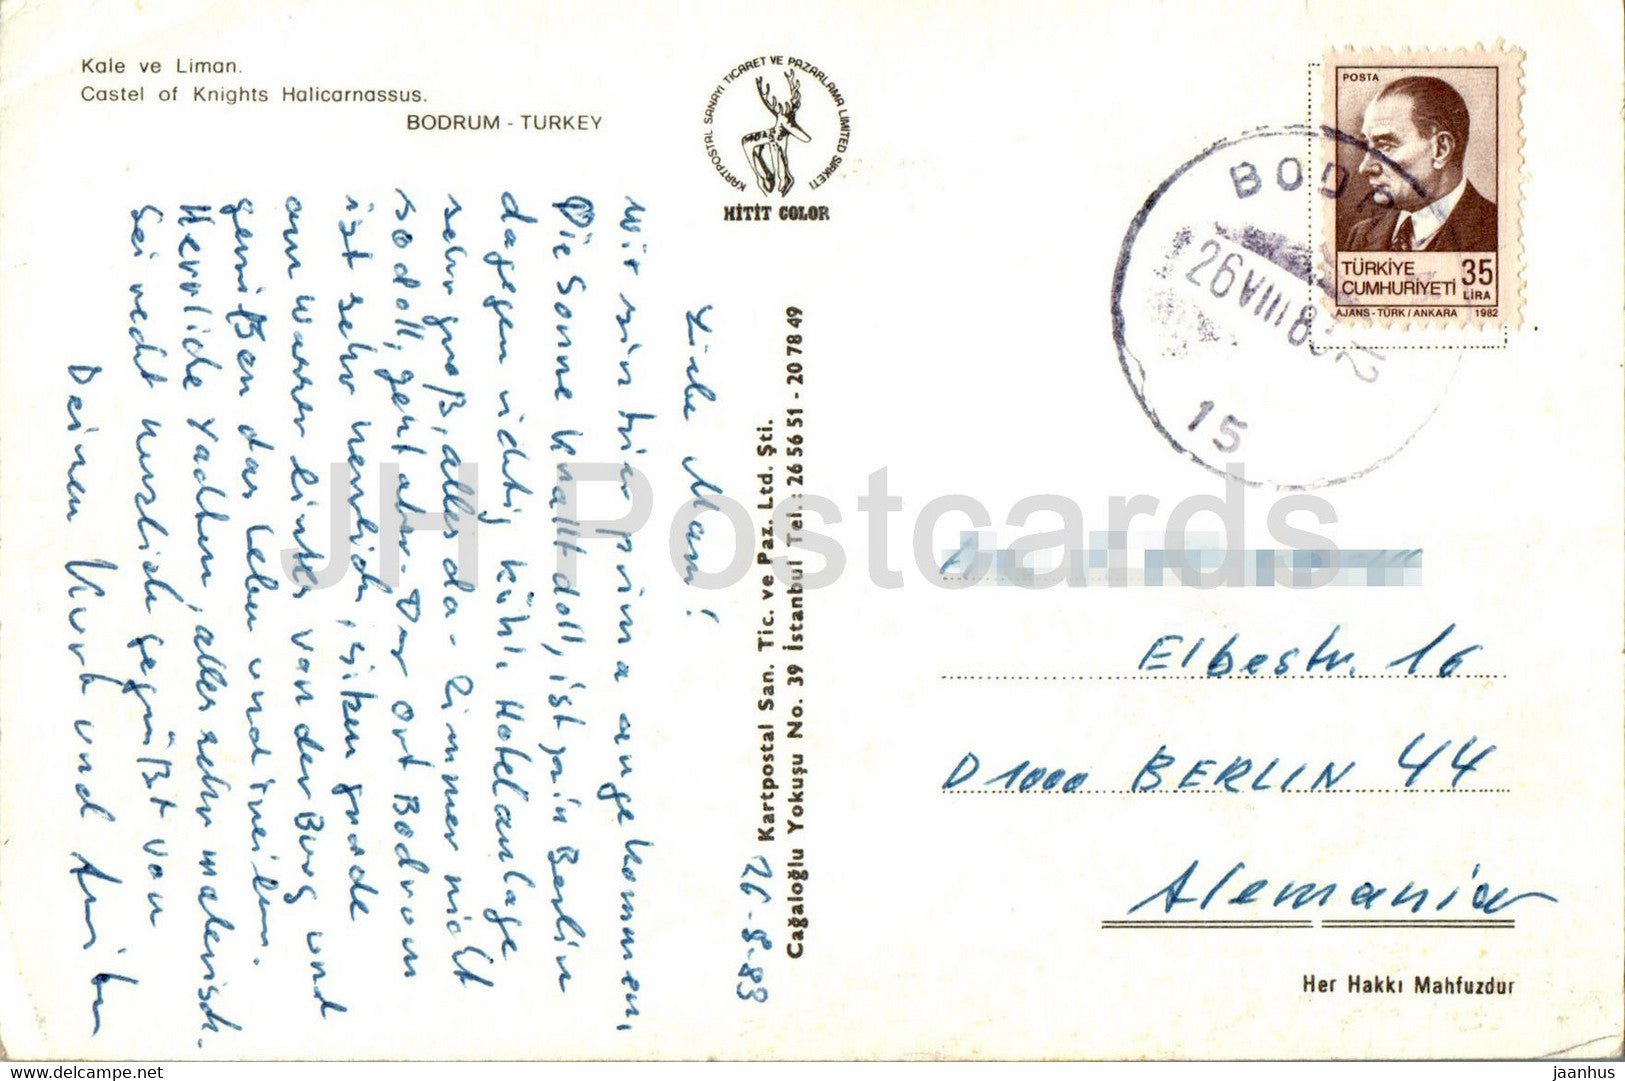 Kale ve Liman.
Castel of Knights Halicarnassus.
BODRUM - TURKEY
KARTPOSTAL SANAYİ TİCARET VE PAZARLAMA LİMİTED ŞİRKETİ
HİTİT COLOR
POSTA
TÜRKİYE
CUMHURİYETİ
35
LİRA
AJANS-TÜRK/ANKARA 1982
BODR
26 VIII 83
15
26-8-83
Liebe Mami!
Wir sind hier prima angekommen,
Die Sonne knallt doll, ist ja in Berlin
dagegen richtig kühl. Hotelanlage
sehr groß, alles da - Zimmer nicht
so doll, geht aber. Der Ort Bodrum
ist sehr herrlich, sitzen grade
am Wasser links von der Burg und
genießen das Leben und
Herrliche Yachten, alles sehr malerisch.
Sei recht herzlich gegrüßt von
Deinen Kurt und
Kartpostal San. Tic. ve Paz. Ltd. Şti.
Cağaloğlu Yokuşu No. 39 İstanbul Tel.: 26 56 51 - 20 78 49
Elbestr. 16
D 1000 BERLIN 44
Alemania
Her Hakkı Mahfuzdur
JH Postcards
jaanhus © delcampe.net